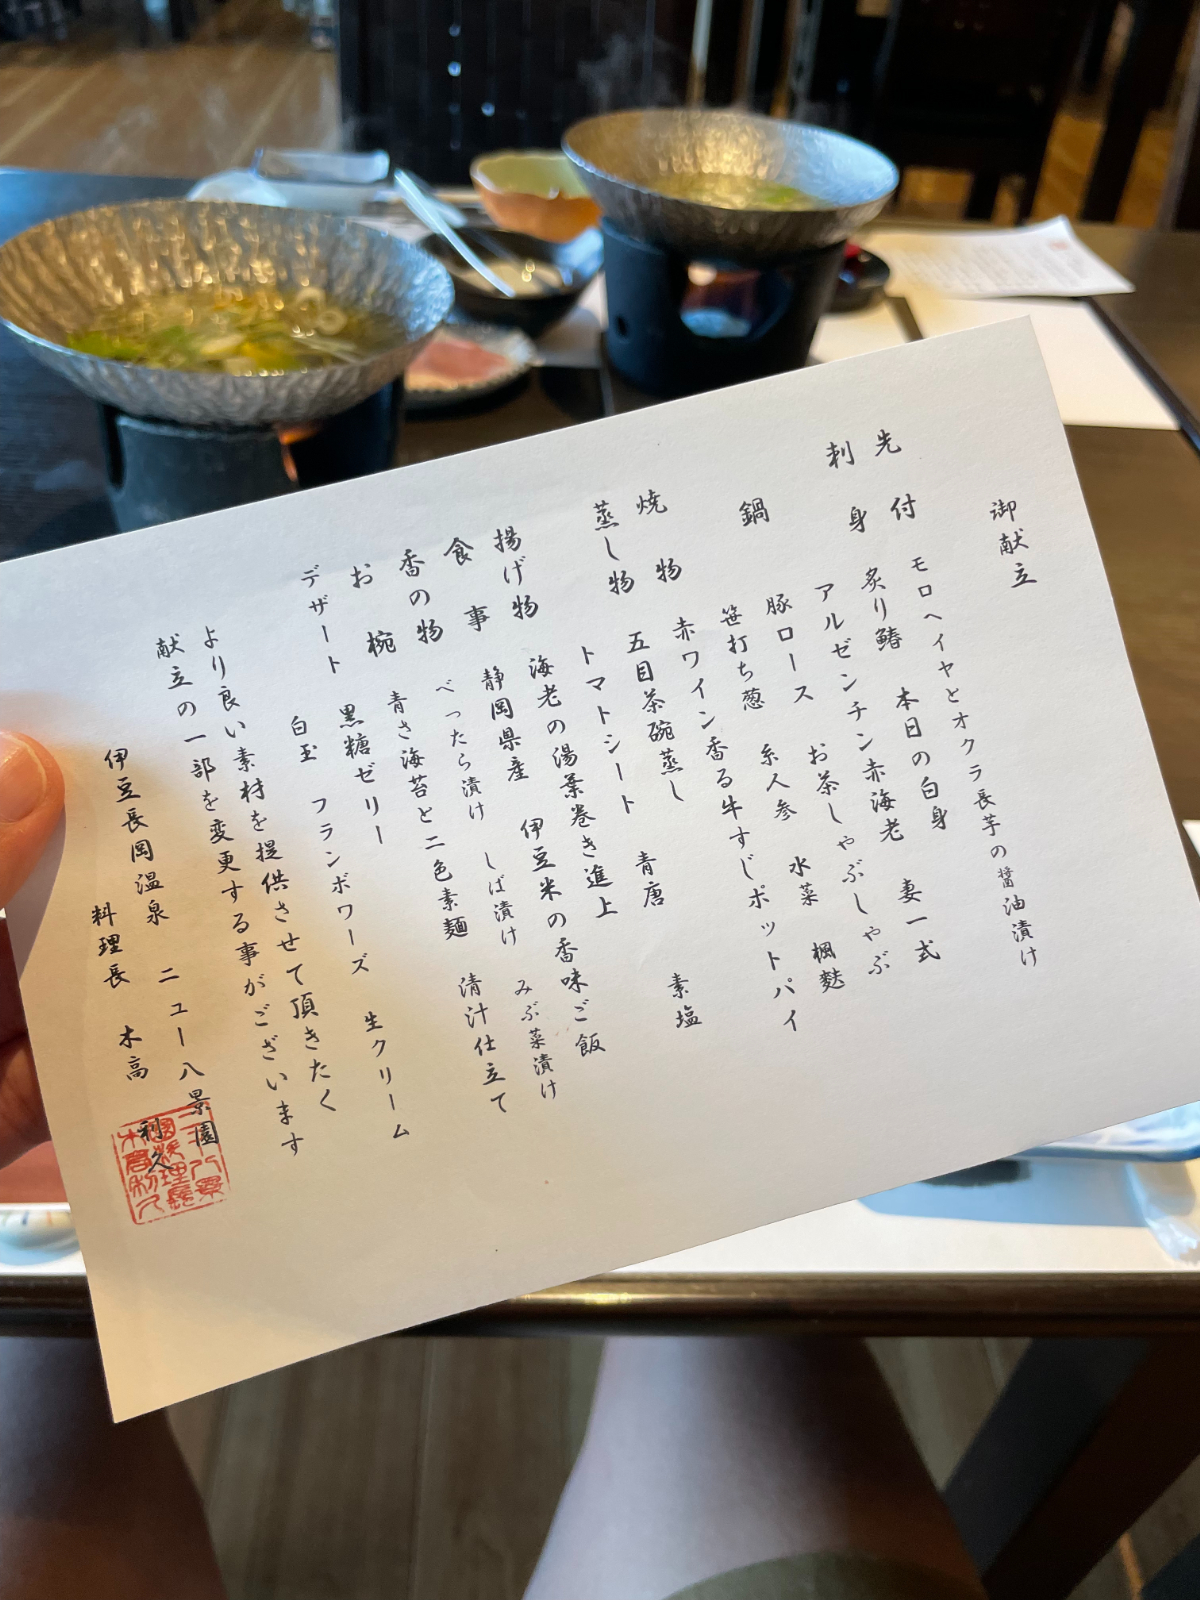 御献立
先付 モロヘイヤとオクラ長芋の醤油漬け
刺身 炙り鰆 本日の白身 妻一式
アルゼンチン赤海老
鍋 豚ロース お茶しゃぶしゃぶ
笹打ち葱 糸人参 水菜 楓麩
焼物 赤ワイン香る牛すじポットパイ
蒸し物 五目茶碗蒸し
トマトシート 青唐 素塩
揚げ物 海老の湯葉巻き進上
食事 静岡県産 伊豆米の香味ご飯
香の物 べったら漬け しば漬け みぶ菜漬け
お椀 青さ海苔と二色素麺 清汁仕立て
デザート 黒糖ゼリー
白玉 フランボワーズ 生クリーム
より良い素材を提供させて頂きたく
献立の一部を変更する事がございます
伊豆長岡温泉 ニュー八景園
料理長 木高 利久